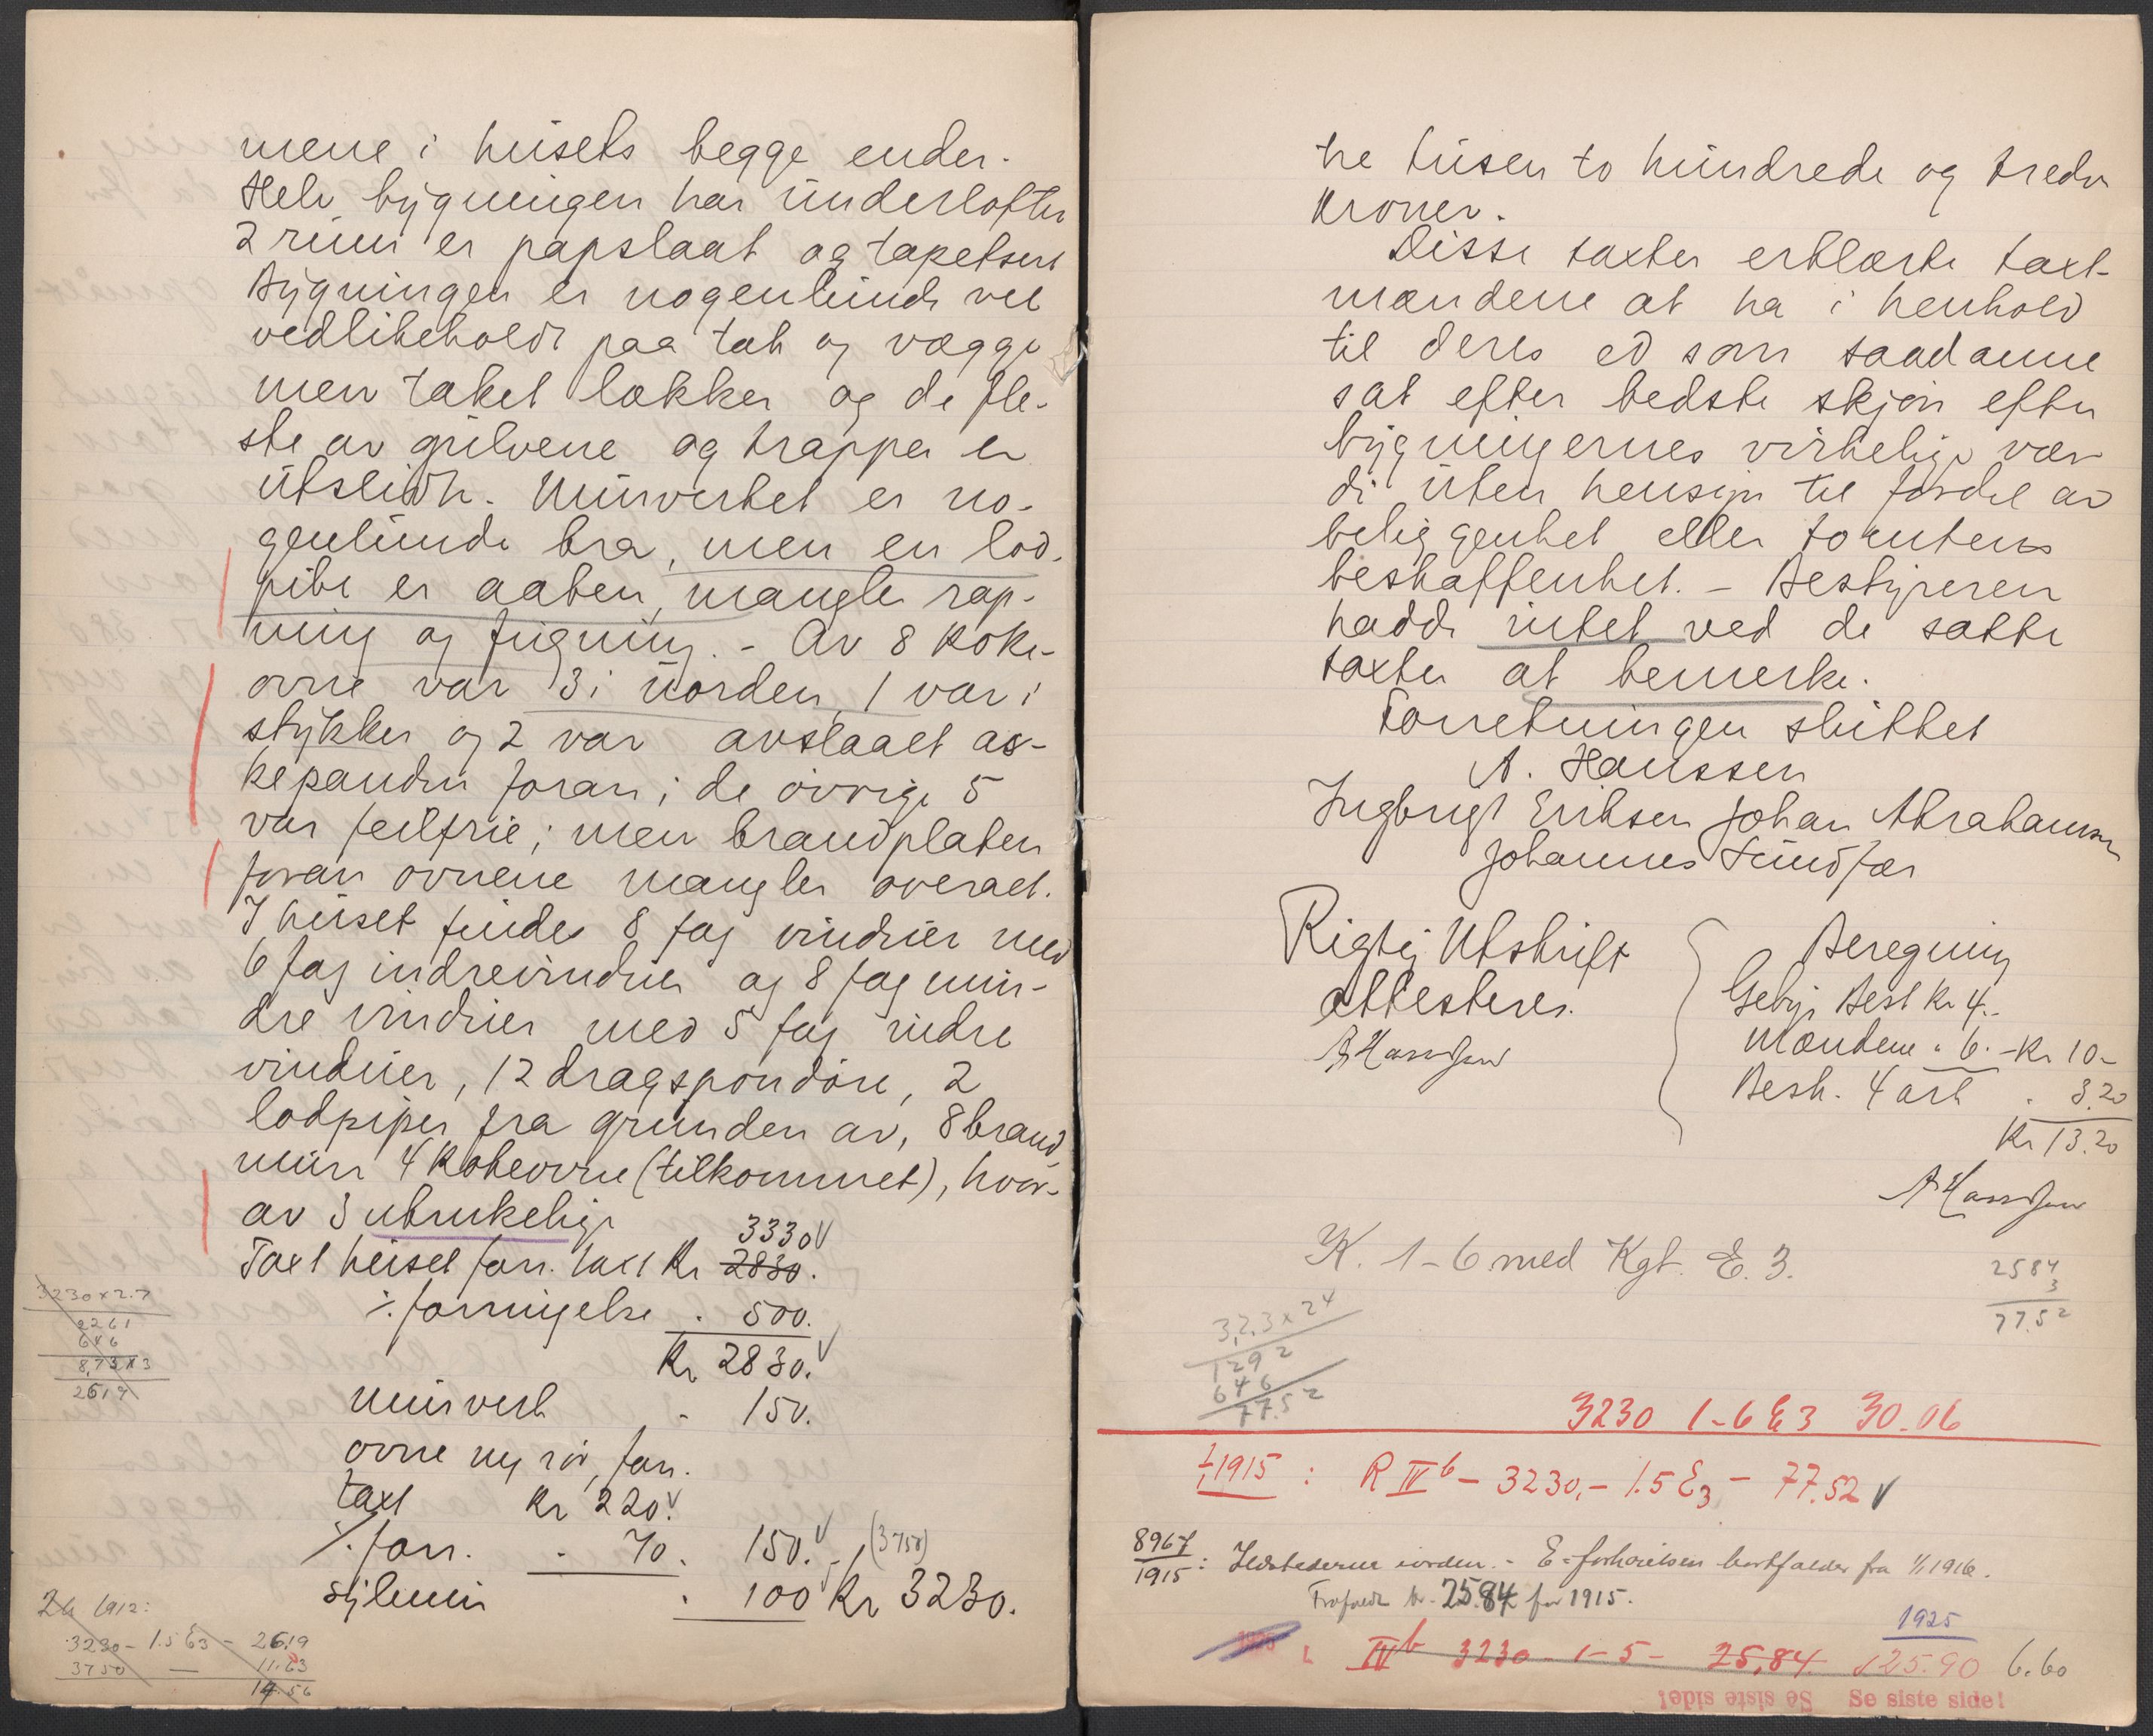 mene i husets begge ender.
Hele bygningen har underlofter
2 rum er papslaat og tapetsert
Bygningen er nogenlunde vel
vedlikeholdt paa tak og vægge
men taket lækker og de fle-
ste av gulvene og trapper er
utslidte. Murverket er no-
genlunde bra, men en lod-
pibe er aaben, mangler rap-
ning og fugning. - Av 8 koke-
ovne var 3 i uorden, 1 var i
stykker og 2 var avslaaet as-
kepanden foran; de øvrige 5
var feilfrie; men brandplaten
foran ovnene mangler overalt.
I huset findes 8 fag vinduer med
6 fag indrevinduer og 8 fag min-
dre vinduer med 5 fag indre
vinduer, 12 dragspondøre, 2
lodpiper fra grunden av, 8 brand
mure 4 kokeovne (tilkommet), hvor-
av 3 ubrukelige
3330
Taxt huset forr. taxt Kr 2830.
% forringelse . 500.
Kr 2830.
Murverk - 150.
ovne og rør, forr.
taxt Kr 220.
% forr. - 70. 150. (3750)
sylmur . 100 Kr 3230.
3230 x 2.7
2261
646
8,73 x 3
2619
1912:
3230 - 1.5 E3 - 26.19
3750 — 11.63
14.56
tre tusen to hundrede og tredve
kroner.
Disse taxter erklærte taxt-
mændene at ha i henhold
til deres ed som saadanne
sat efter bedste skjøn efter
bygningernes virkelige vær-
di uten hensyn til fordel av
beliggenhet eller tomtens
beskaffenhet. - Bestyreren
hadde intet ved de satte
taxter at bemerke.
Forretningen sluttet
A. Hanssen
Ingbrigt Eriksen Johan Abrahamsen
Johannes Sundfær
Rigtig Utskrift
attesteres.
A Hanssen
Beregning
Gebyr Best Kr 4.-
Mændene " 6. - Kr 10-
Besk. 4 ark . 3.20
Kr 13.20
A Hanssen
K. 1-6 med Kgt. E. 3.
2584
3
77.52
3,2.3 x 24
1292
646
77.52
3230 1-6 E3 30.06
1/1 1915 : R IV b - 3230,- 1.5 E3 - 77.52
8967
1915 : Ildstederne iorden. - E = forhøielsen bortfalder fra 1/1 1916.
Frafaldt kr. 25.84 for 1915.
1925
IV b 3230 - 1-5 - 25,84 125.90 6.60
Se siste side! Se siste side!